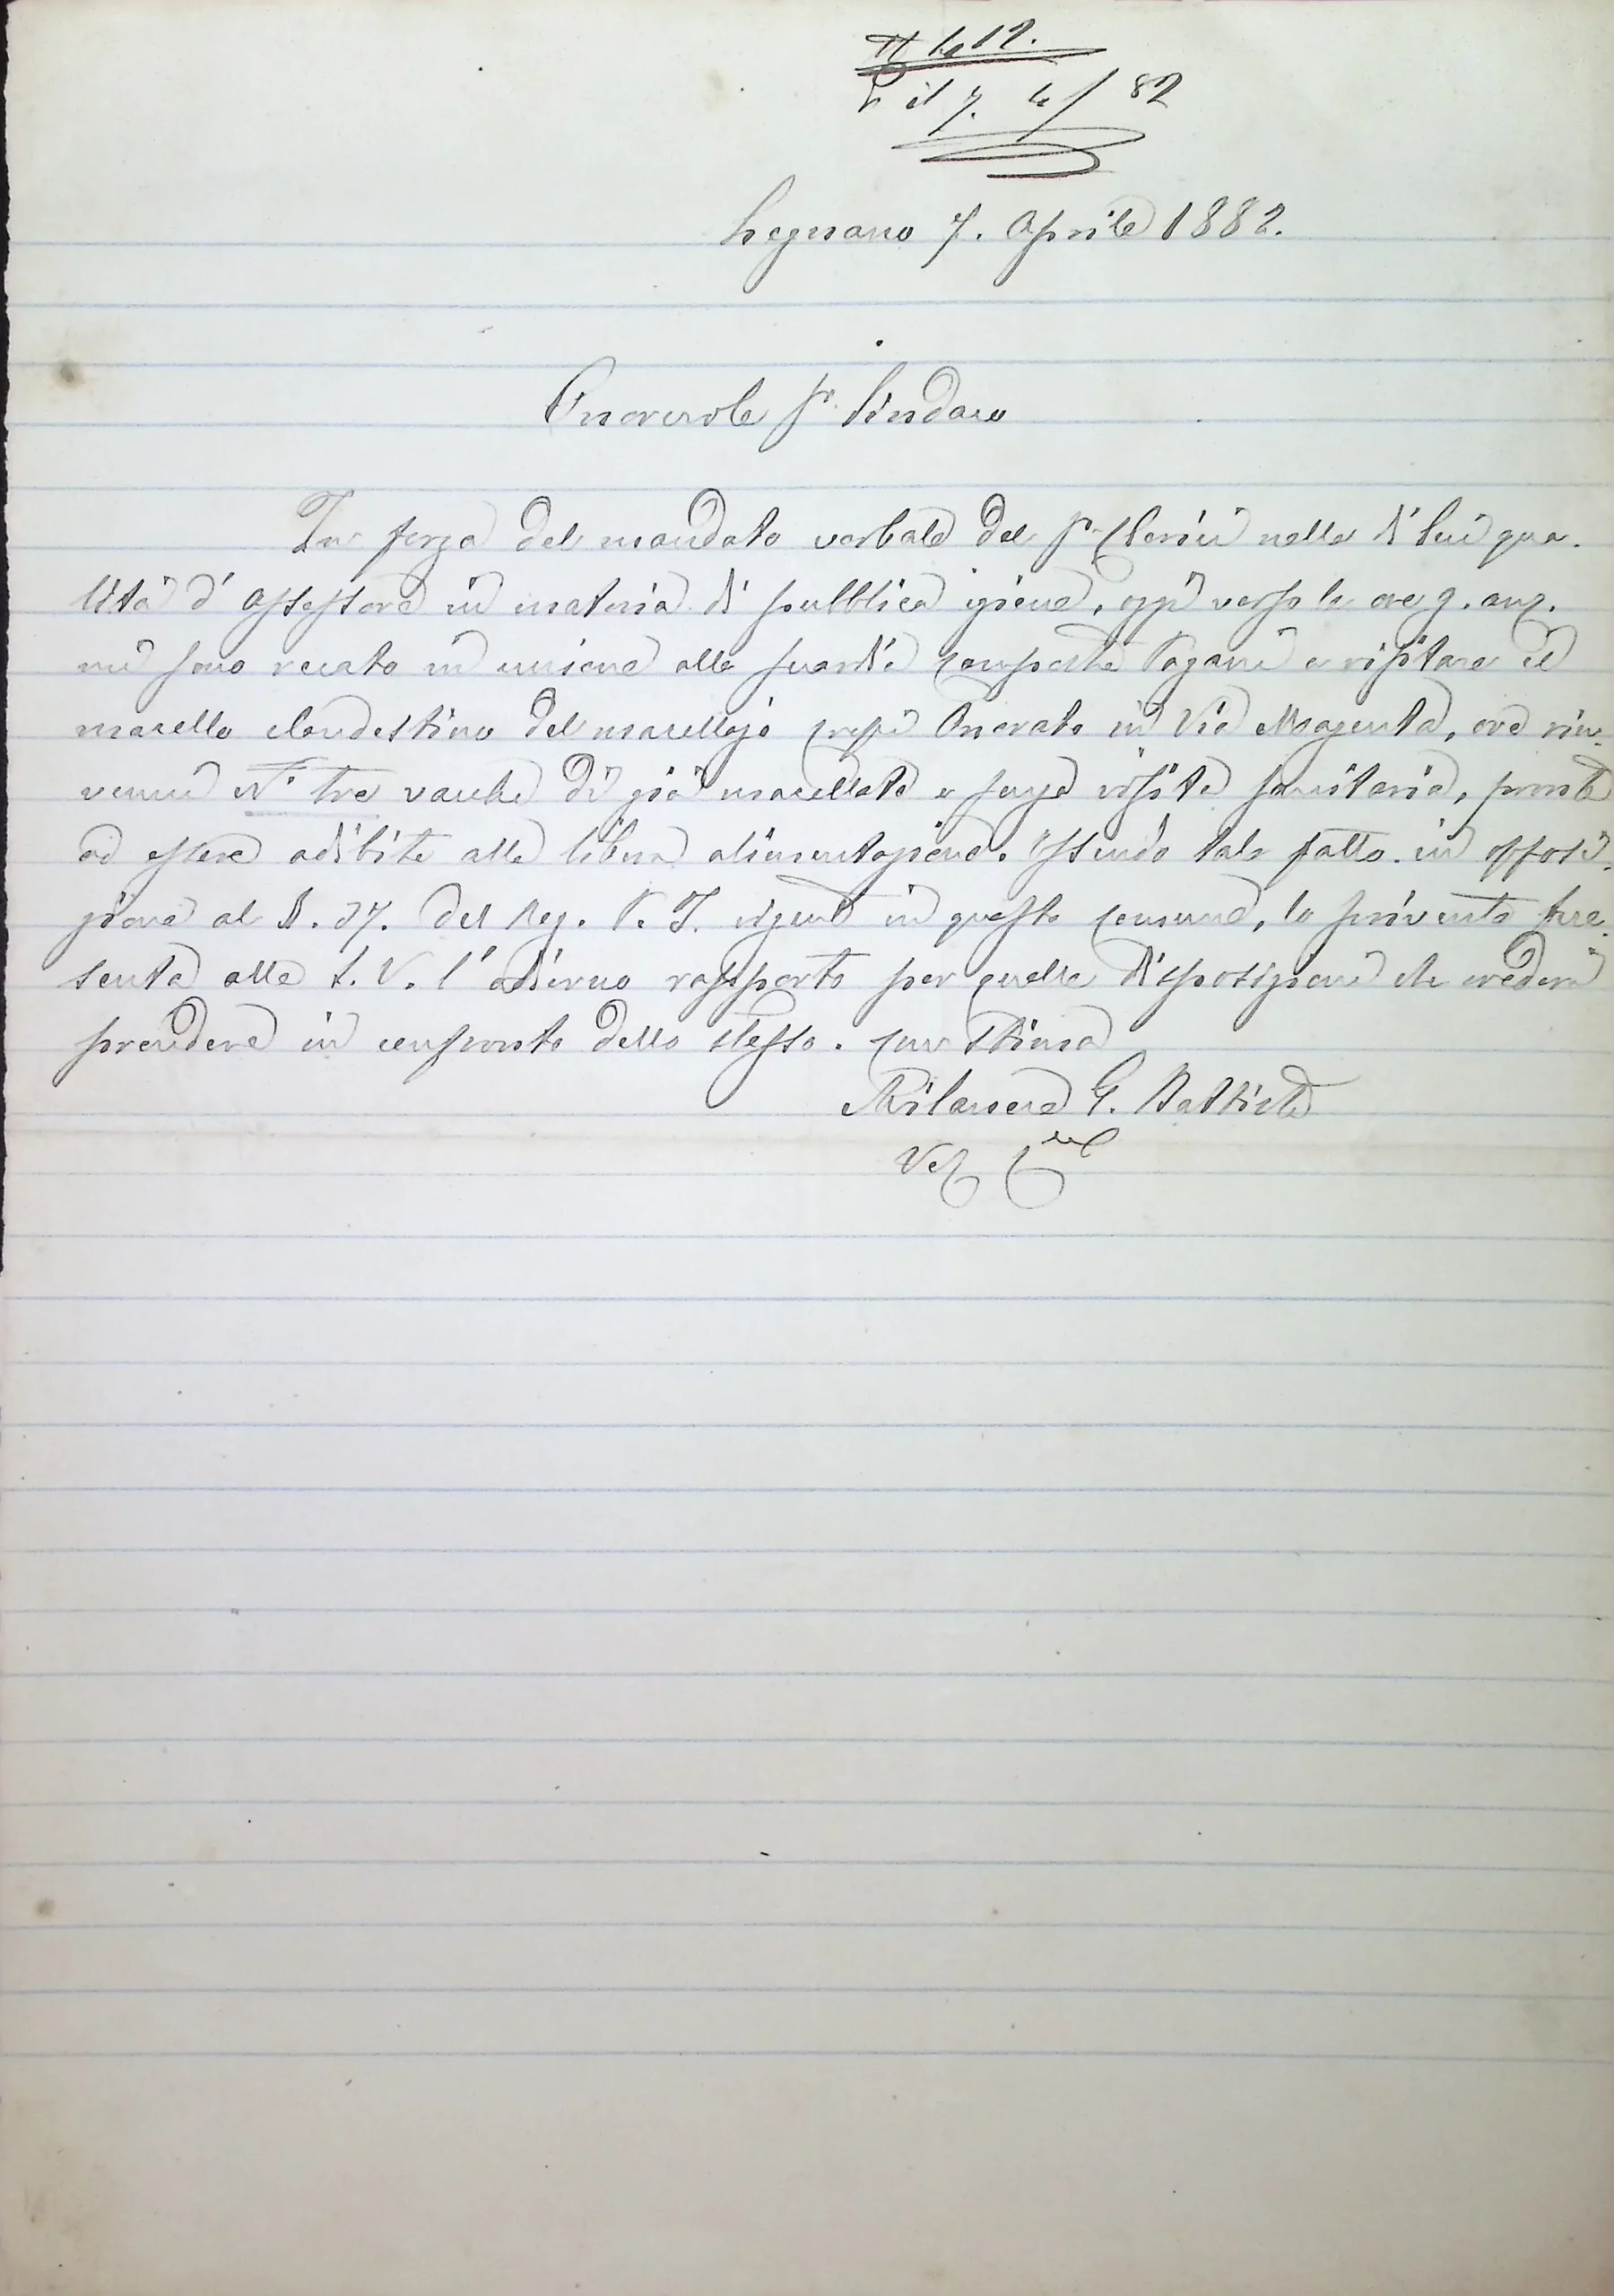 N 612.
P. il 7. 4/82
Legnano 7. Aprile 1882.
Onorevole Sr. Sindaco
In forza del mandato verbale del Sr. Clerici nella di lui qua-
lità d'assessore in materia di pubblica igiene, oggi verso le ore 9. anz.
mi sono recato in unione alla guardia campestre Pagani a visitare il
macello clandestino del macellajo Crespi Onorato in Via Magenta, ove rin-
venni N° tre vacche di già macellate e senza visita sanitaria, pronte
ad essere adibite alla libera alimentazione. Essendo tale fatto in opposi-
zione al §. 37. del Reg. P. I. vigente in questo comune, lo scrivente pre-
senta alla S. V. l'odierno rapporto per quelle disposizioni che crederà
prendere in confronto dello stesso. Con stima
Milanese G. Battista
Vet